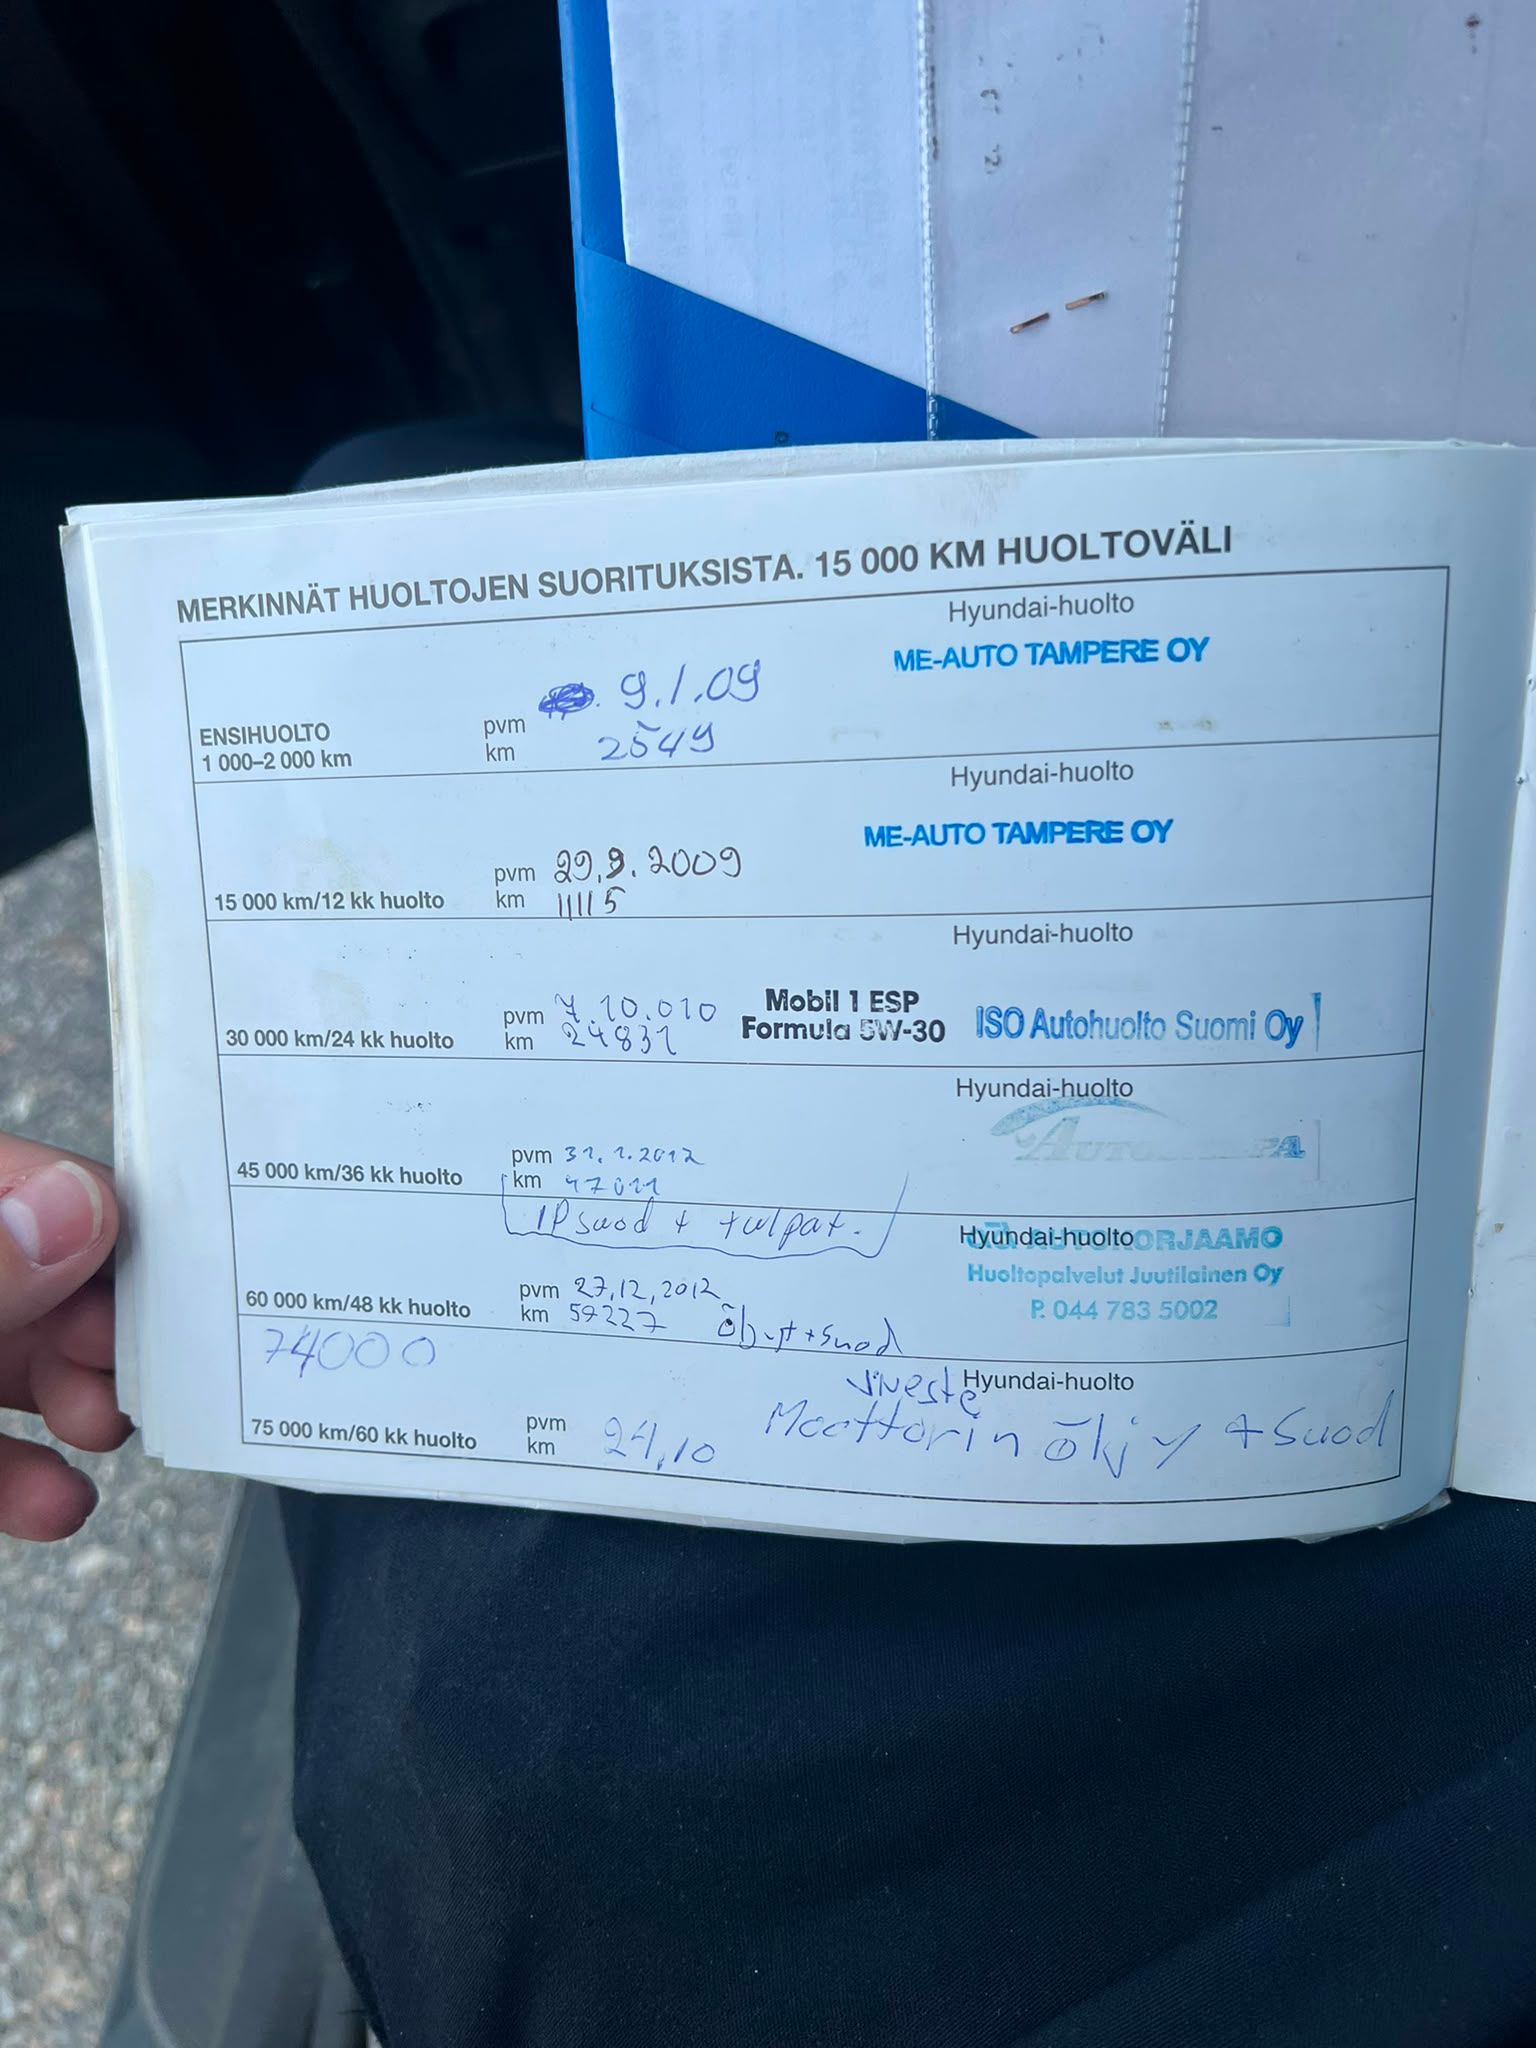 MERKINNÄT HUOLTOJEN SUORITUKSISTA. 15 000 KM HUOLTOVÄLI
Hyundai-huolto
ME-AUTO TAMPERE OY
ENSIHUOLTO
1 000–2 000 km
pvm 9.1.09
km 2549
Hyundai-huolto
ME-AUTO TAMPERE OY
15 000 km/12 kk huolto
pvm 29.9.2009
km 11115
Hyundai-huolto
30 000 km/24 kk huolto
pvm 7.10.010
km 24831
Mobil 1 ESP
Formula 5W-30
ISO Autohuolto Suomi Oy
Hyundai-huolto
45 000 km/36 kk huolto
pvm 31.1.2012
km 47011
IP suod + tulpat.
Hyundai-huolto
AUTOKORJAAMO
Huoltopalvelut Juutilainen Oy
P. 044 783 5002
60 000 km/48 kk huolto
pvm 27.12.2012
km 59227
+ suod
74000
Hyundai-huolto
75 000 km/60 kk huolto
pvm
km 24.10
Moottorin öljy + suod